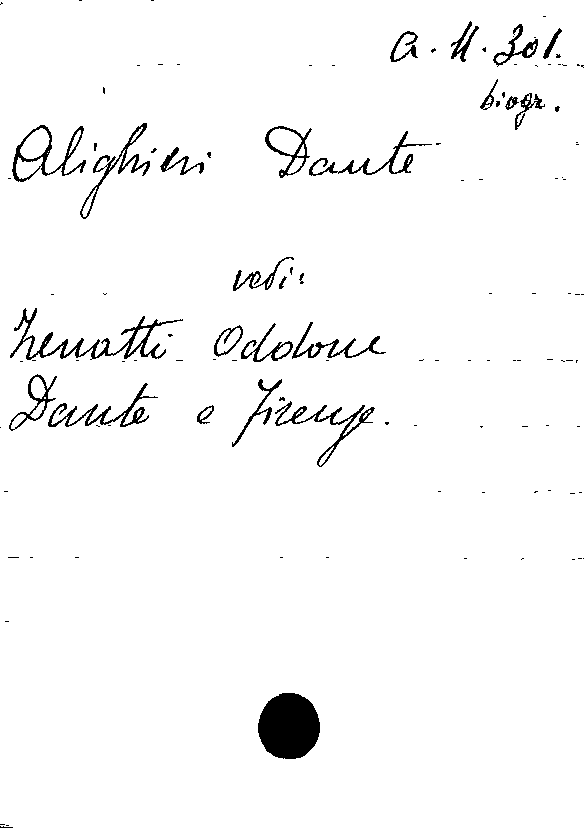 a. 11. 301.
biogr.
Alighieri Dante
vedi:
Zenatti Oddone
Dante e Firenze.